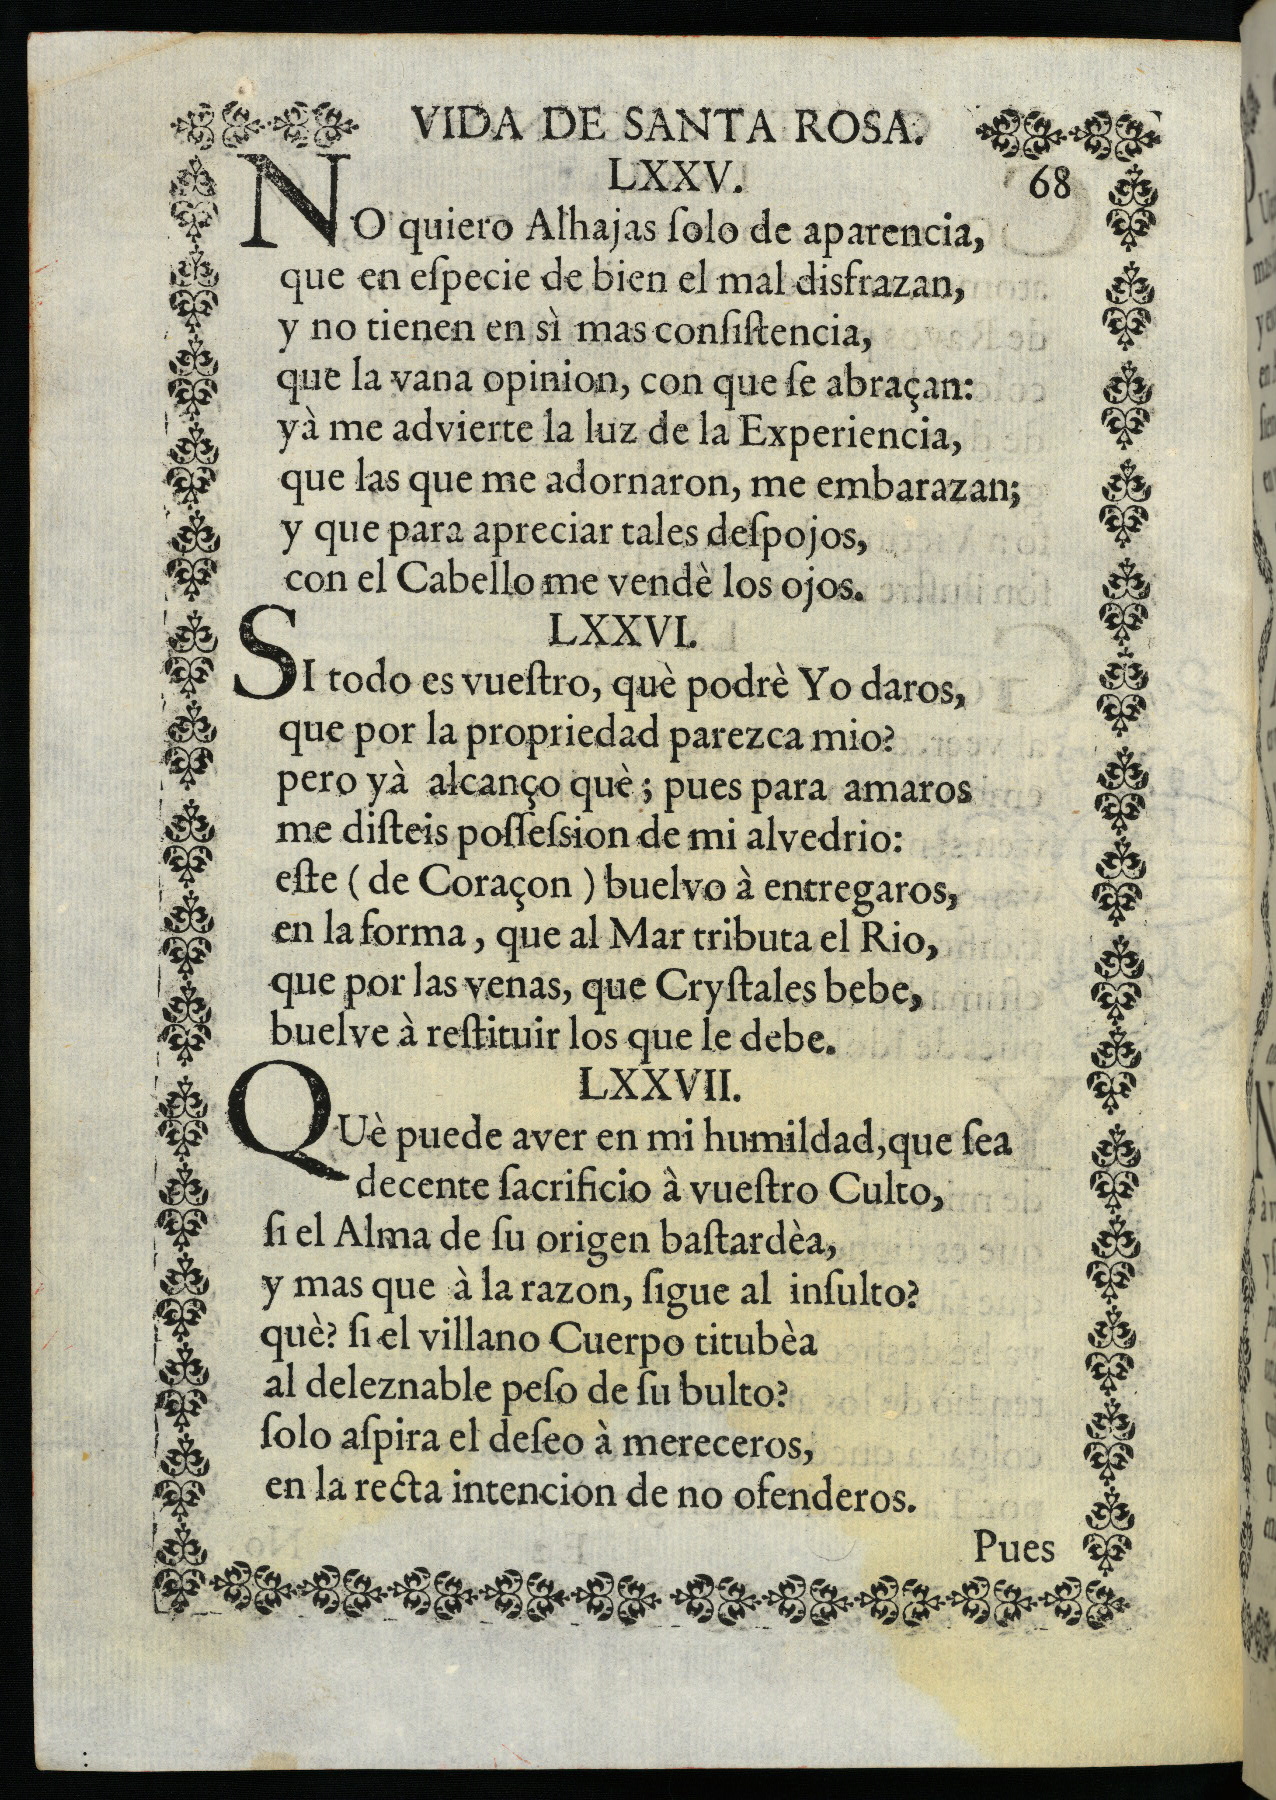 VIDA DE SANTA ROSA.
LXXV.
68
NO quiero Alhajas ſolo de aparencia,
que en eſpecie de bien el mal disfrazan,
y no tienen en sì mas conſiſtencia,
que la vana opinion, con que ſe abraçan:
yà me advierte la luz de la Experiencia,
que las que me adornaron, me embarazan;
y que para apreciar tales deſpojos,
con el Cabello me vendè los ojos.
LXXVI.
SI todo es vueſtro, què podrè Yo daros,
que por la propriedad parezca mio?
pero yà alcanço què; pues para amaros
me diſteis poſſeſsion de mi alvedrio:
eſte ( de Coraçon ) buelvo à entregaros,
en la forma, que al Mar tributa el Rio,
que por las venas, que Cryſtales bebe,
buelve à reſtituir los que le debe.
LXXVII.
QUè puede aver en mi humildad, que ſea
decente ſacrificio à vueſtro Culto,
ſi el Alma de ſu origen baſtardèa,
y mas que à la razon, ſigue al inſulto?
què? ſi el villano Cuerpo titubèa
al deleznable peſo de ſu bulto?
ſolo aſpira el deſeo à mereceros,
en la recta intencion de no ofenderos.
Pues